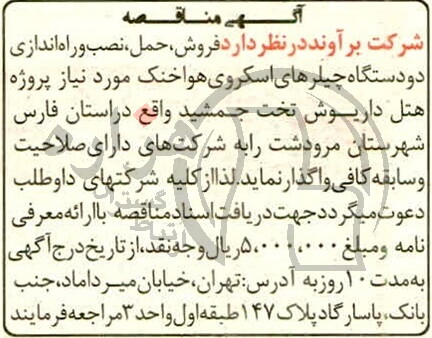 آگـهـی مناقـصـه
شرکت برآوند درنظر دارد فروش، حمل، نصب و راه‌اندازی
دودستگاه چیلرهای اسکروی هواخنک مورد نیاز پروژه
هتل داریـوش تخت جـمشید واقع دراستان فارس
شهرستان مرودشت رابه شرکت‌های دارای صلاحیت
وسابقه کافی واگذار نماید. لذا از کلیه شرکتهای داوطلب
دعوت میگردد جهت دریافت اسناد مناقصه باارائه معرفی
نامه ومبلغ ۵،۰۰۰،۰۰۰ ریال وجه نقد، از تاریخ درج آگهی
به مدت ۱۰ روز به آدرس: تهران، خیابان میرداماد، جنب
بانک، پاساژ گاد پلاک ۱۴۷ طبقه اول واحد ۳ مراجعه فرمایند